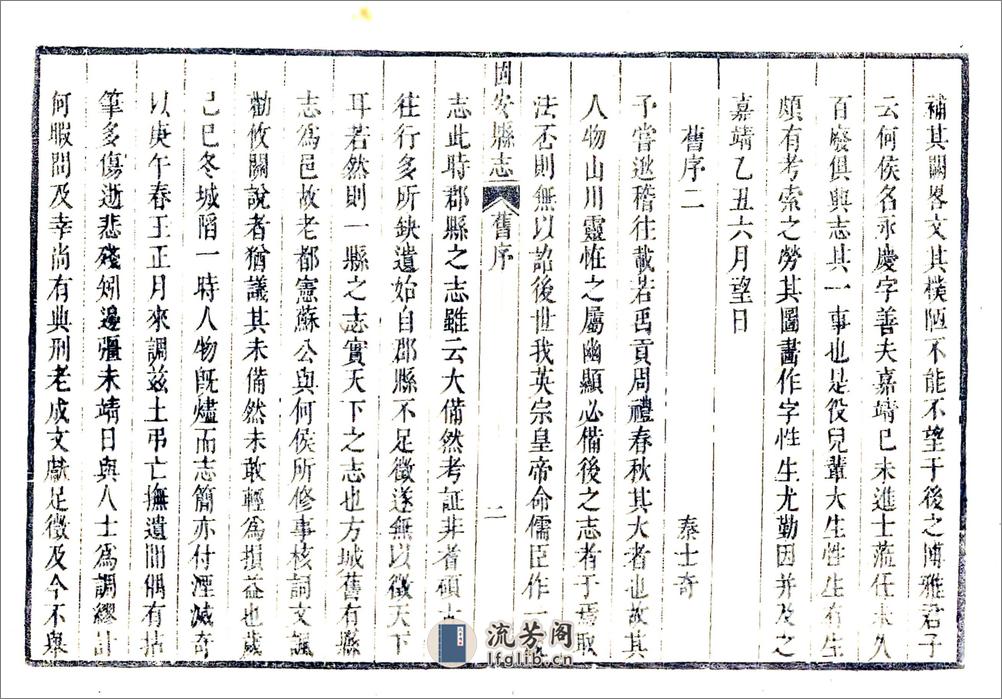 補其闕畧文其樸陋不能不望于後之博雅君子
云何侯名永慶字善夫嘉靖己未進士蒞任未久
百廢俱興志其一事也是役兒輩大生性生有生
頗有考索之勞其圖畫作字性生尤勤因并及之
嘉靖乙丑六月望日
舊序二
秦士奇
予嘗遡稽往載若禹貢周禮春秋其大者也故其
人物山川靈怪之屬幽顯必備後之志者于焉取
法否則無以詔後世我英宗皇帝命儒臣作一
固安縣志
舊序
二
志此時郡縣之志雖云大備然考証非耆碩
往行多所缺遺始自郡縣不足徵遂無以徵天下
耳若然則一縣之志實天下之志也方城舊有縣
志為邑故老都憲蘇公與何侯所修事核詞文諷
勸攸關說者猶議其未備然未敢輕為損益也歲
己巳冬城陷一時人物旣燼而志簡亦付湮滅奇
以庚午春王正月來調兹土弔亡撫遺間偶有拈
筆多傷逝悲殘矧邊疆未靖日與人士為調繆計
何暇問及幸尚有典刑老成文獻足徵及今不舉
流芳阁
lfglib.cn